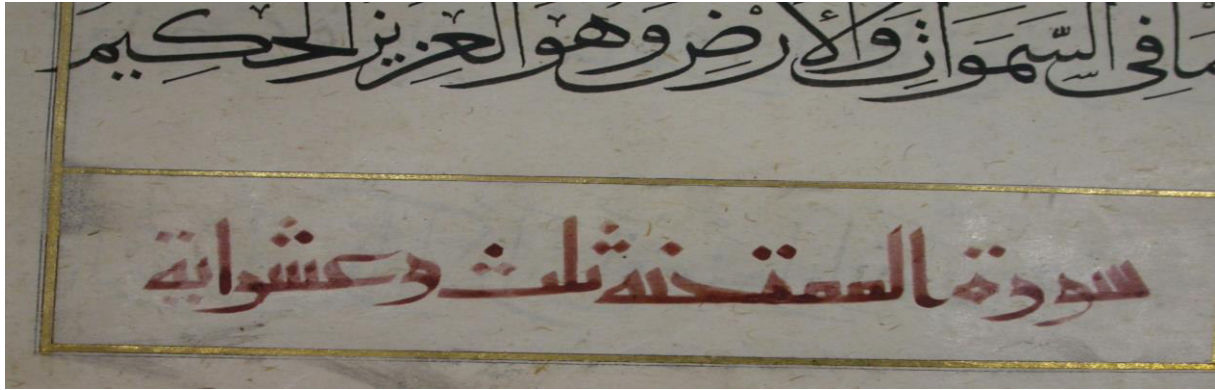 مَا فِي السَّمَوَاتِ وَالْأَرْضِ وَهُوَ الْعَزِيزُ الْحَكِيم
سورة الممتحنه ثلث وعشر اية